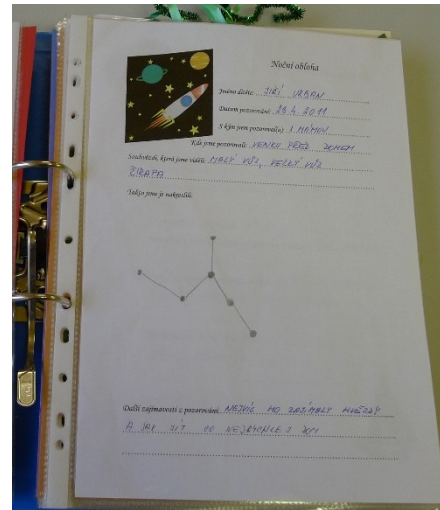 Noční obloha
Jméno dítěte: JIŘÍ URBAN
Datum pozorování: 26.4.2011
S kým jsem pozoroval(a): S MÁMOU
Kde jsme pozorovali: VENKU PŘED DOMEM
Souhvězdí, která jsme viděli: MALÝ VŮZ, VELKÝ VŮZ
ŽIRAFA
Takto jsme je nakreslili:
Další zajímavosti z pozorování: NEJVÍC HO ZAJÍMALY HVĚZDY
A JAK JÍT CO NEJRYCHLEJI